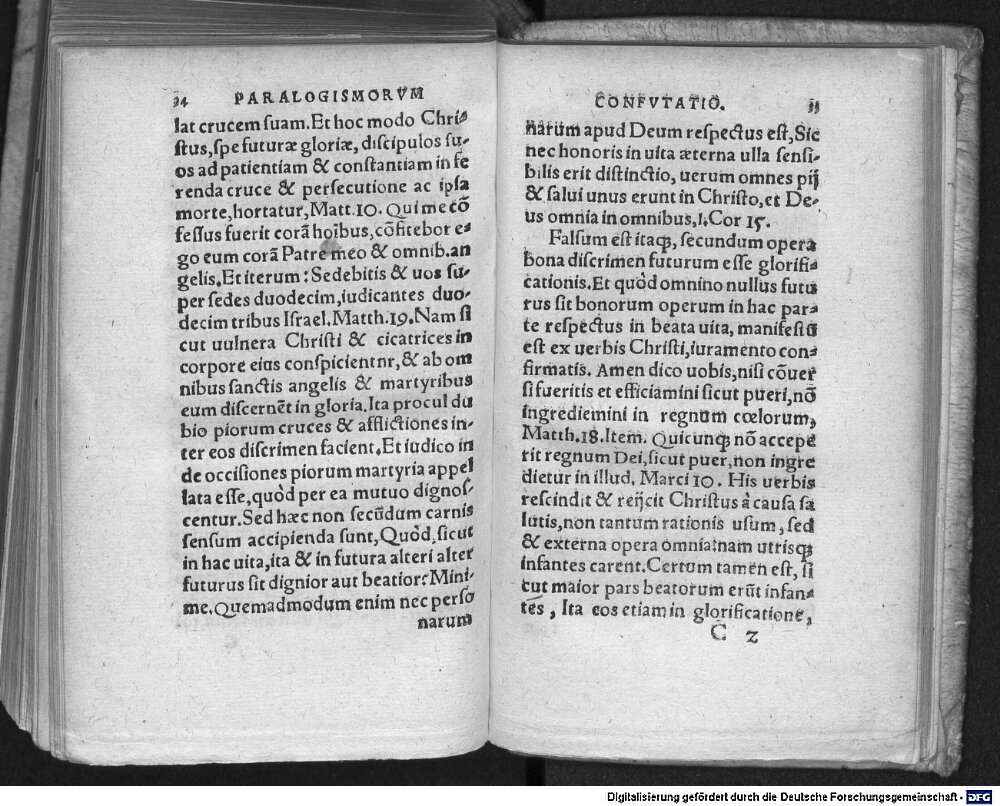 34 PARALOGISMORVM
lat crucem ſuam. Et hoc modo Chri⸗
ſtus, ſpe futuræ gloriæ, diſcipulos ſu⸗
os ad patientiam & conſtantiam in fe
renda cruce & perſecutione ac ipſa
morte, hortatur, Matt. 10. Qui me cõ
feſſus fuerit corã hoĩbus, cõfitebor e⸗
go eum corã Patre meo & omnib. an
gelis. Et iterum: Sedebitis & uos ſu⸗
per ſedes duodecim, iudicantes duo⸗
decim tribus Iſrael. Matth. 19. Nam ſi
cut uulnera Chriſti & cicatrices in
corpore eius conſpicientnr, & ab om
nibus ſanctis angelis & martyribus
eum diſcernẽt in gloria. Ita procul du
bio piorum cruces & afflictiones in⸗
ter eos diſcrimen facient. Et iudico in
de occiſiones piorum martyria appel
lata eſſe, quòd per ea mutuo dignoſ⸗
centur. Sed hæc non ſecũdum carnis
ſenſum accipienda ſunt, Quòd, ſicut
in hac uita, ita & in futura alteri alter
futurus ſit dignior aut beatior? Mini⸗
me. Quemadmodum enim nec perſo
narum
CONFVTATIO. 35
narum apud Deum reſpectus eſt, Sic
nec honoris in uita æterna ulla ſenſi⸗
bilis erit diſtinctio, uerum omnes pij
& ſalui unus erunt in Chriſto, et De⸗
us omnia in omnibus, 1. Cor 15.
Falſum eſt itaq;, ſecundum opera
bona diſcrimen futurum eſſe glorifi⸗
cationis. Et quòd omnino nullus futu
rus ſit bonorum operum in hac par⸗
te reſpectus in beata uita, manifeſtũ
eſt ex uerbis Chriſti, iuramento con⸗
firmatis. Amen dico uobis, niſi cõuer
ſi fueritis et efficiamini ſicut pueri, nõ
ingrediemini in regnum cœlorum,
Matth. 18. Item. Quicunq; nõ accepe
rit regnum Dei, ſicut puer, non ingre
dietur in illud. Marci 10. His uerbis
reſcindit & reijcit Chriſtus à cauſa ſa
lutis, non tantum rationis uſum, ſed
& externa opera omnia: nam utriſq;
infantes carent. Certum tamen eſt, ſi
cut maior pars beatorum erũt infan⸗
tes, Ita eos etiam in glorificatione,
C 2
Digitalisierung gefördert durch die Deutsche Forschungsgemeinschaft - DFG